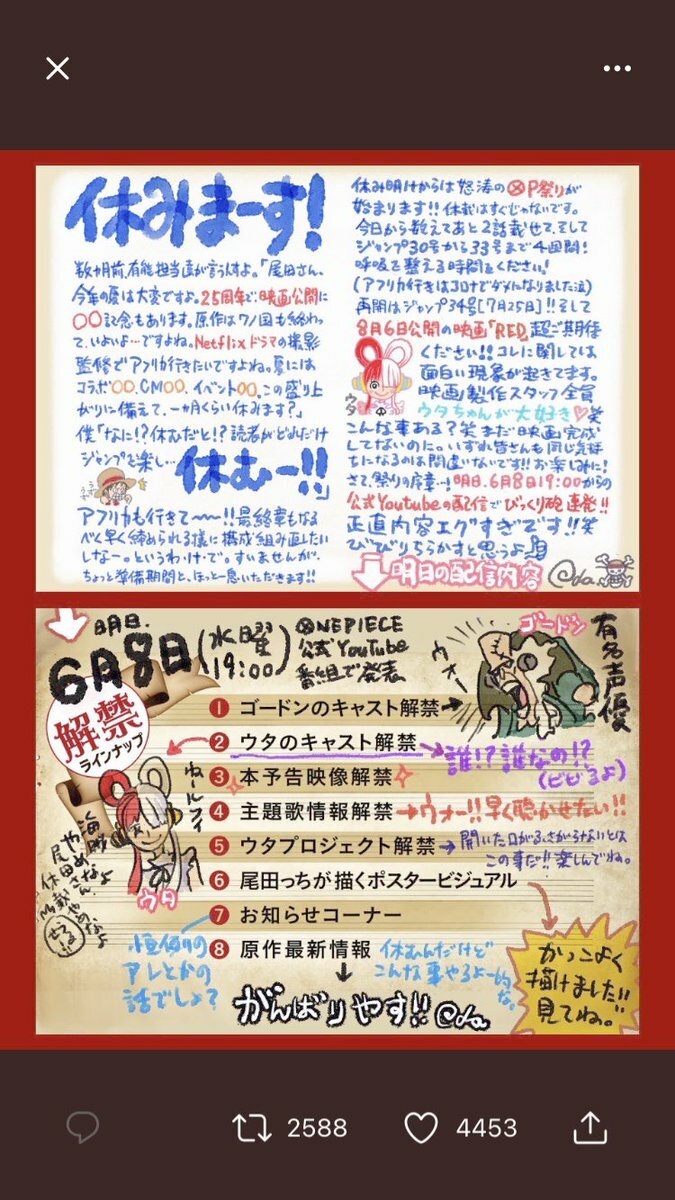 休みまーす!
数ヶ月前、有能担当達が言うんすよ。「尾田さん、
今年の夏は大変ですよ。25周年で映画公開に
〇〇記念もあります。原作はワノ国も終わっ
て、いよいよ…ですよね。Netflixドラマの撮影
監修でアフリカ行きたいですよね。夏には
コラボ〇〇、CM〇〇、イベント〇〇。この盛り上
がりに備えて、一ヶ月くらい休みます?」
僕「なに!?休むだと!?読者がどれだけ
ジャンプを楽し… 休むー!!」
アフリカも行きて〜〜!!最終章もなる
べく早く締められる様に構成組み直したい
しなー。というわ・け・で。すいませんが、
ちょっと準備期間と、ほっと一息いただきます!!
休み明けからは怒涛のOP祭りが
始まります!!休載はすぐじゃないです。
今日から数えてあと2話載せて、そして
ジャンプ30号から33号まで4週間!
呼吸を整える時間をください!
(アフリカ行きはコロナでダメになりました泣)
再開はジャンプ34号[7月25日]!!そして
8月6日公開の映画「RED」超ご期待
ください!!コレに関しては
面白い現象が起きてます。
映画製作スタッフ全員
ウタちゃんが大好き♡笑
ウタ
こんな事ある?笑 まだ映画完成
してないのに。いずれ皆さんも同じ気持
ちになるのは間違いないです!!お楽しみに!
さて、祭りの序章…!明日、6月8日19:00からの
公式Youtubeの配信でびっくり砲連発!!
正直内容エグすぎです!!笑
びびりちらかすと思うよ
明日の配信内容
Oda.
明日.
6月8日(水曜19:00)
ONEPIECE
公式YouTube
番組で発表
ゴードン
有名声優
ウォー
解禁
ラインナップ
❶ ゴードンのキャスト解禁
❷ ウタのキャスト解禁
誰!?誰なの!?
(ビビるよ)
❸ 本予告映像解禁
❹ 主題歌情報解禁
ウォー!!早く聴かせたい!!
❺ ウタプロジェクト解禁
開いた口がふさがらないとは
この事だ!!楽しんでね。
❻ 尾田っちが描くポスタービジュアル
かっこよく
描けました!!
見てね。
❼ お知らせコーナー
恒例の
アレとかの
話でしょ?
❽ 原作最新情報
休むんだけど
こんな事やるよー的
な。
がんばりやす!! Oda.
ねールフィ
海賊
やめなよ
尾田さん
休載やめなよ
ウタ
2588
4453